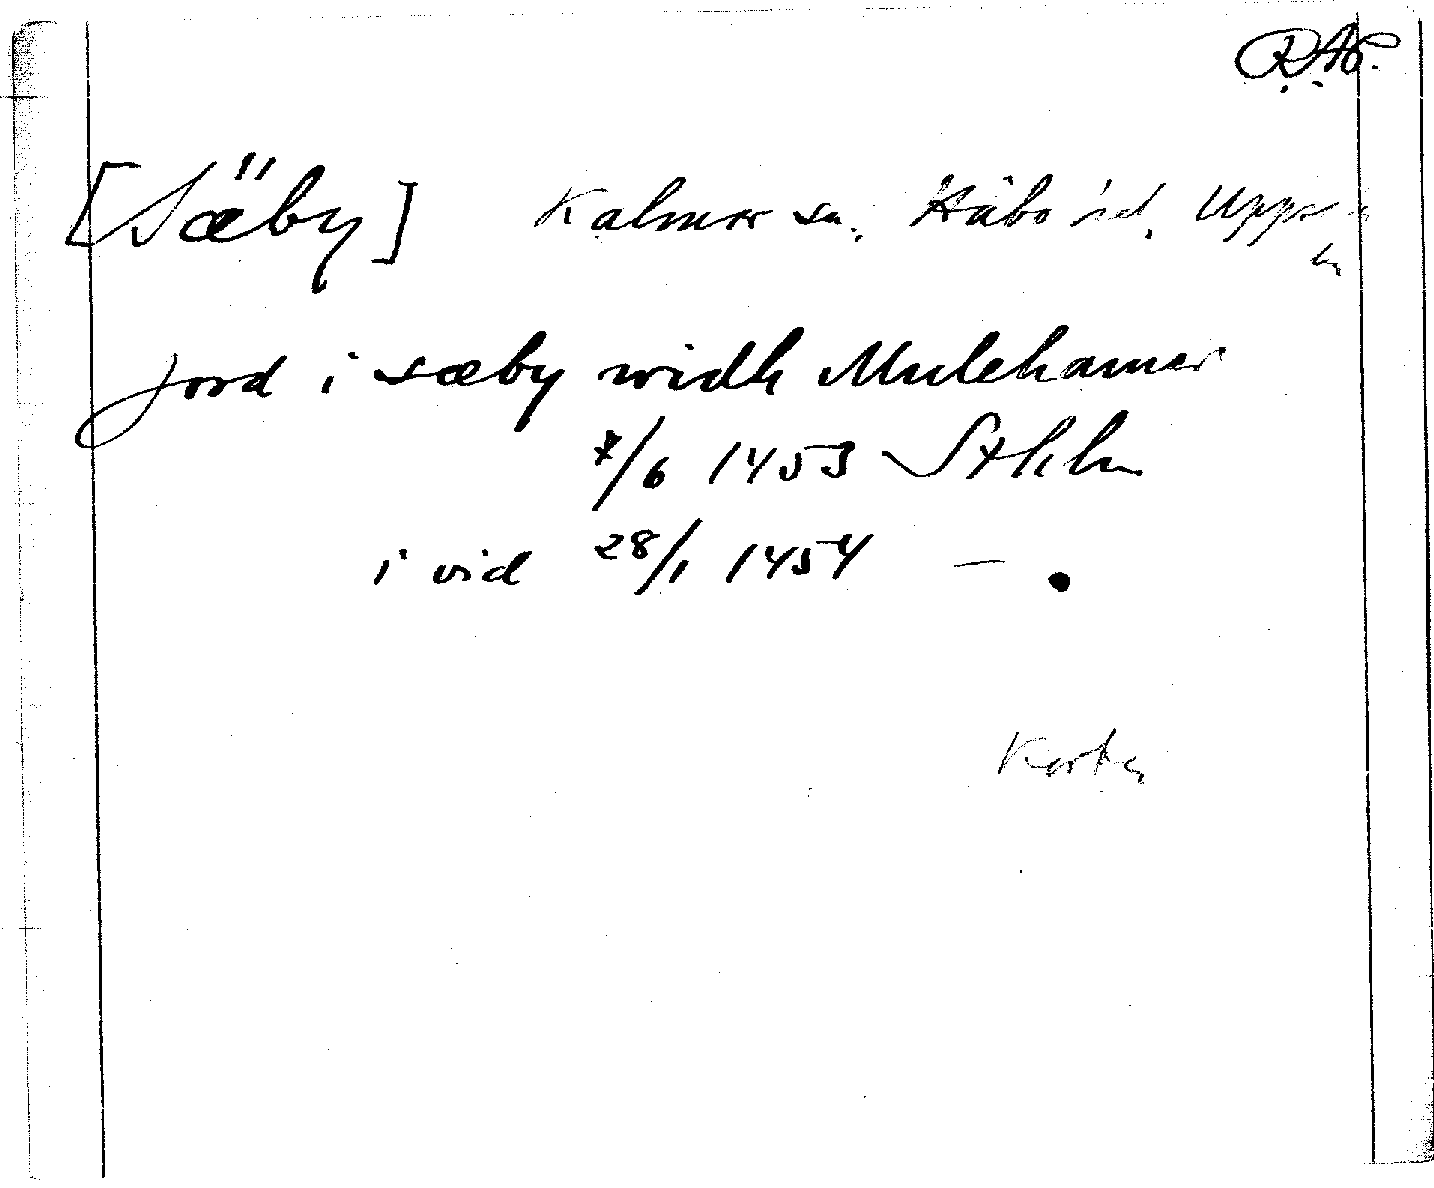 RAp.
[Säby] Kalmar sn. Håbo hd. Upps. ln
jord i sæby widh Mulehamar
7/6 1453 Sthlm
i vid 28/1 1454 — .